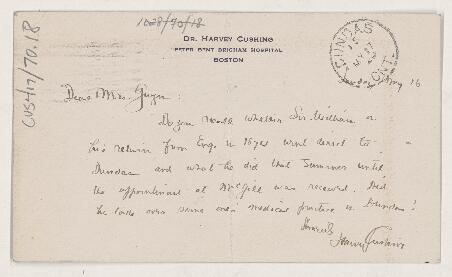 1028/70/18
CUS417/70.18
DR. HARVEY CUSHING
PETER BENT BRIGHAM HOSPITAL
BOSTON
DUNDAS
ONT
May 16
Dear Mrs. Gwyn:
Do you recall whether Sir William on
his return from Eng. in 1874 went direct to
Dundas and what he did that Summer until
the appointment at McGill was received. Did
he take over some one's medical practice in Dundas?
Harvey Cushing